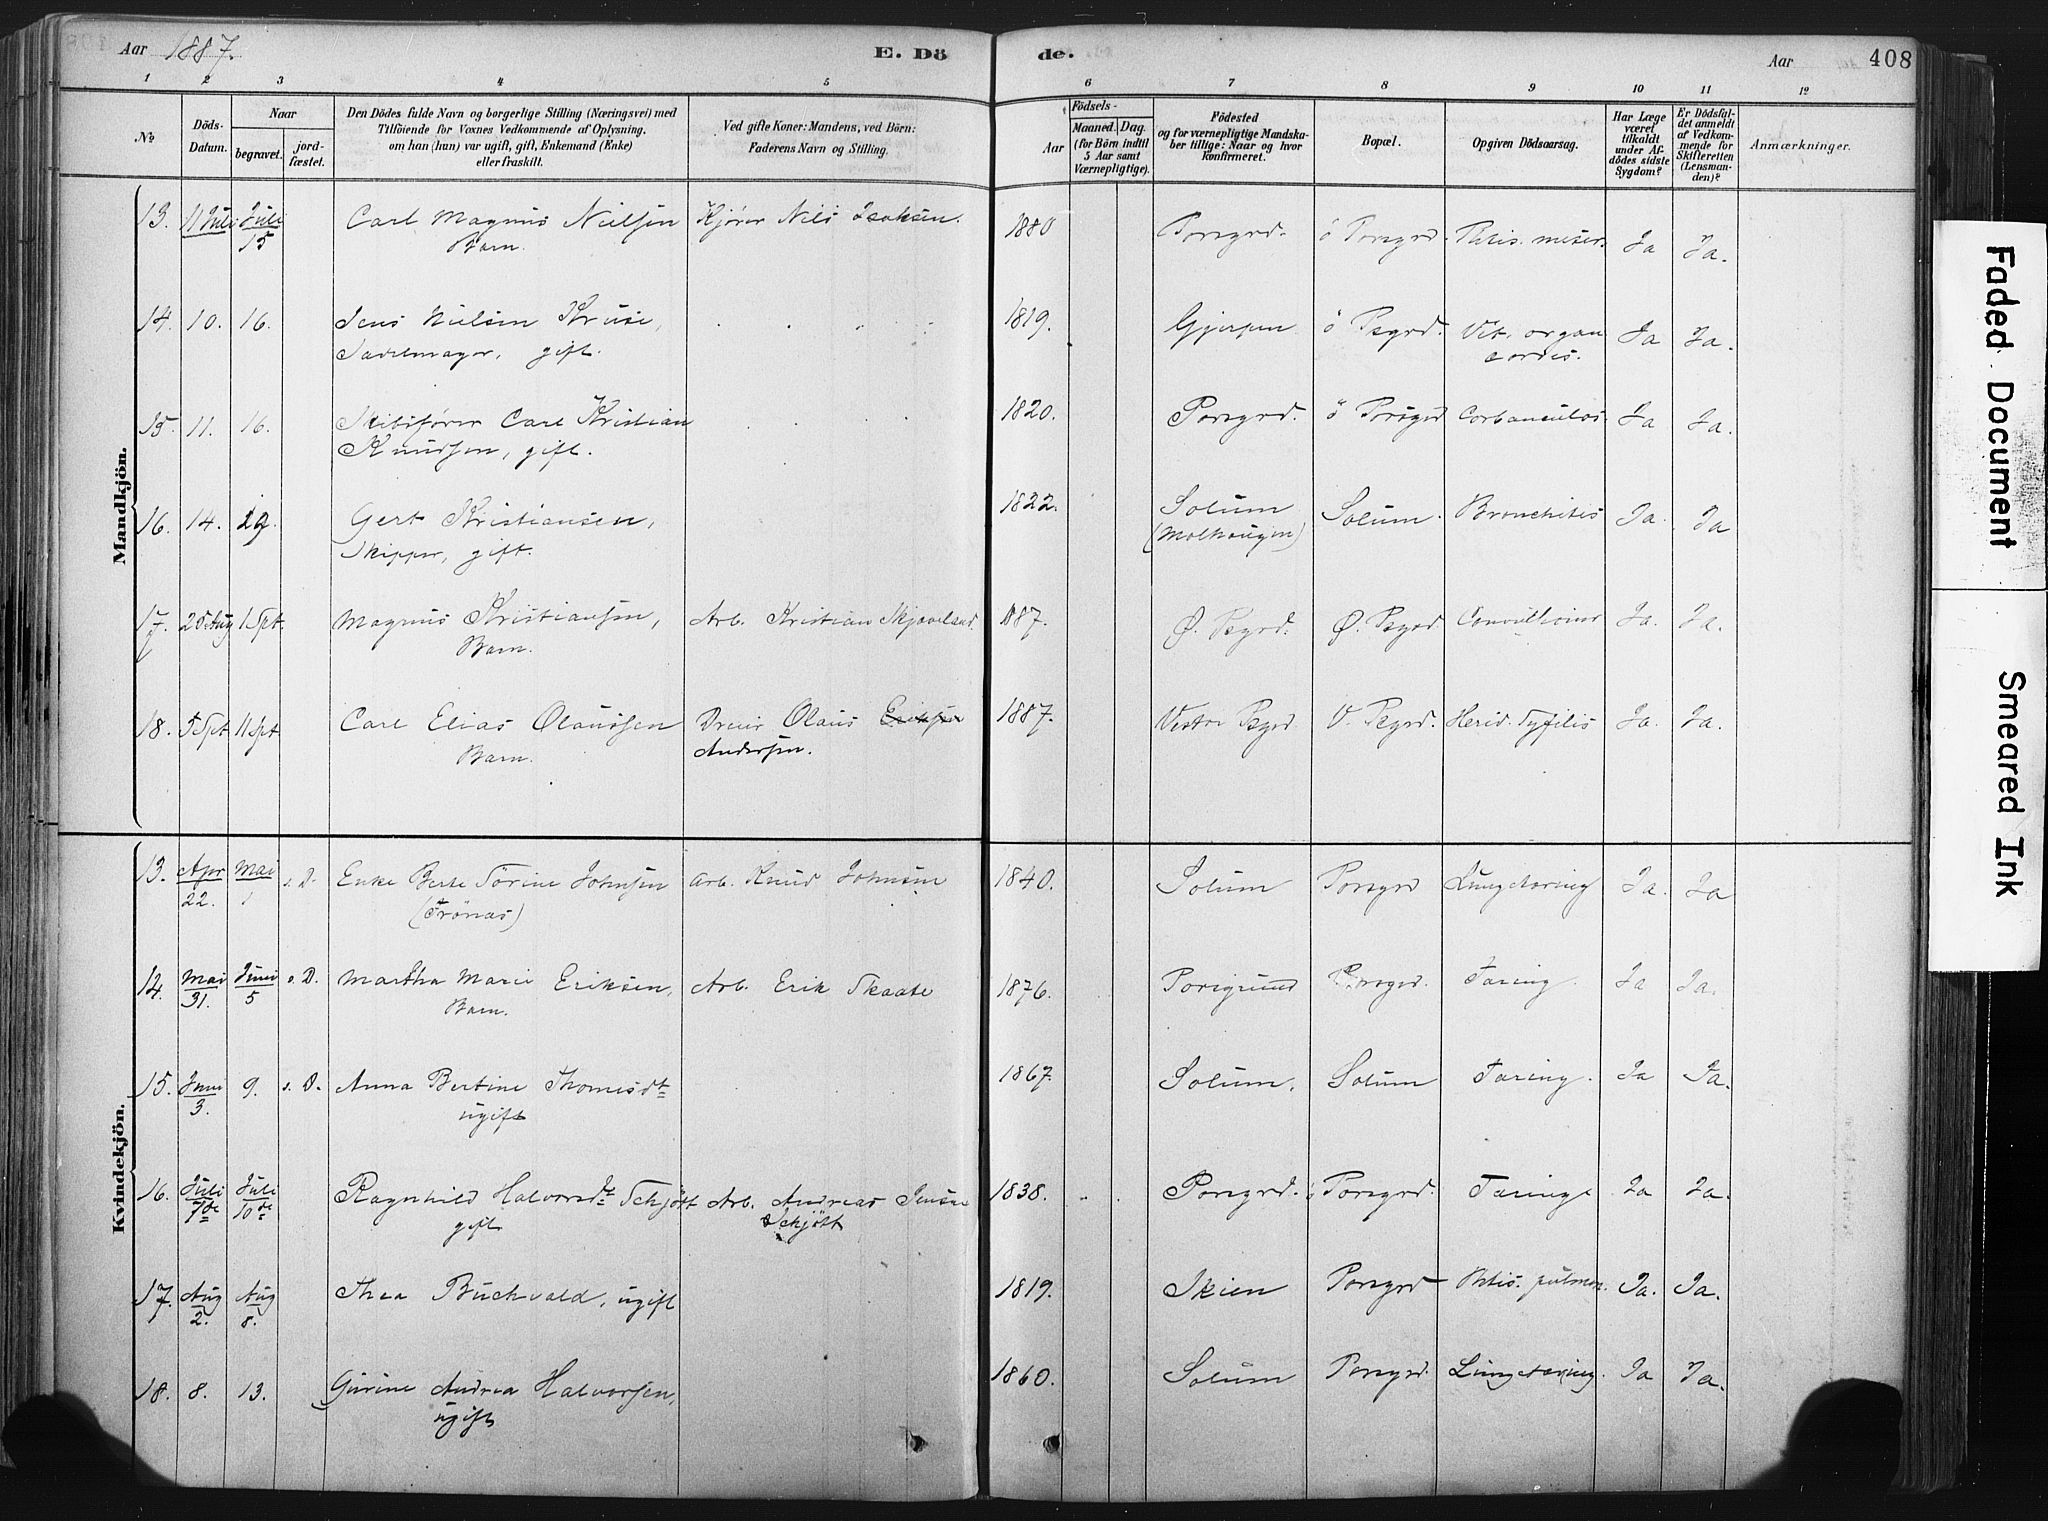 Aar 1887. E. Dö de. Aar 408
1 2 3 4 5 6 7 8 9 10 11 12
No. Döds-Datum. Naar begravet. jordfæstet.
Den Dödes fulde Navn og borgerlige Stilling (Næringsvei) med
Tilföiende for Voxnes Vedkommende af Oplysning,
om han (hun) var ugift, gift, Enkemand (Enke)
eller fraskilt.
Ved gifte Koner: Mandens, ved Börn:
Faderens Navn og Stilling.
Födsels-
Aar Maaned. Dag.
(for Börn indtil
5 Aar samt
Værnepligtige).
Födested
og for værnepligtige Mandska-
ber tillige: Naar og hvor
konfirmeret.
Bopæl.
Opgiven Dödsaarsag.
Har Læge
været
tilkaldt
under Af-
dödes sidste
Sygdom?
Er Dödsfal-
det anmeldt
af Vedkom-
mende for
Skifteretten
(Lensman-
den)?
Anmærkninger.
Mandkjön.
13. 11 Juli Juli 15 Carl Magnus Nielsen Kjører Nils Isaksen. 1880 Porsgrd. ö Porsgrd. Phtis. meser. Ja Ja.
Barn.
14. 10. 16. Jens Nielsen Kruse, 1819. Gjerpen ö Psgrd. Vit. organ Ja Ja.
Sadelmager, gift. cordis.
15. 11. 16. Skibsfører Carl Kristian 1820. Porsgrd. ö Porsgrd Corbanculus. Ja Ja.
Knudsen, gift.
16. 14. 19. Gert Kristiansen, 1822. Solum Solum. Bronchitis Ja. Ja
Skipper, gift. (Molhaugen)
17. Aug 1 Spt. Magnus Kristiansen, Arb. Kristian Skjoveland. 1887. Ø. Psgrd. Ø. Psgrd. Convultions Ja. Ja.
Barn.
18. 5 Spt 11 Spt Carl Elias Olaussen Dreier Olaus Eriksen 1887. Vestre Psgrd V. Psgrd. Herid. Syfilis Ja. Ja.
Barn. Andersen.
Kvindekjön.
13. Apr 22. Mai 1 s. D. Enke Berte Tørine Johnsen Arb. Knud Johnsen 1840. Solum Porsgrd Lungetæring Ja. Ja
(Trønas)
14. Mai 31. Juni 5 s. D. Martha Marie Eriksen, Arb. Erik Skaate 1876. Porsgrund Porsgrd. Tæring. Ja Ja.
Barn.
15. Juni 3. 9. s. D. Anna Bertine Thomesdt 1867. Solum. Solum Tæring. Ja Ja.
ugift
16. Juli 7de Juli 10de Ragnhild Halvorsdt Schjøtt Arb. Andreas Jensen 1838. Porsgrd. ö Porsgrd. Tæring Ja Ja.
gift Schjøtt
17. Aug 2. Aug 8. Thea Buchvald, ugift 1819. Skien Porsgrd Phtis. pulmon. Ja. Ja.
18. 8. 13. Gurine Andrea Halvorsen, 1860. Solum Porsgrd. Lungetæring. Ja Ja.
ugift
Faded Document
Smeared Ink